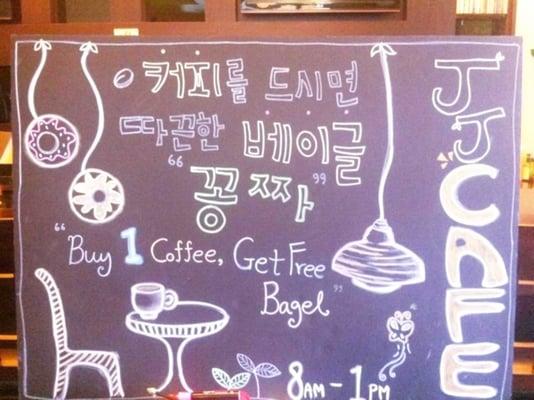 커피를 드시면
따끈한 베이글
"꽁짜"
"Buy 1 Coffee, Get Free
Bagel"
8AM - 1PM
JJ CAFE